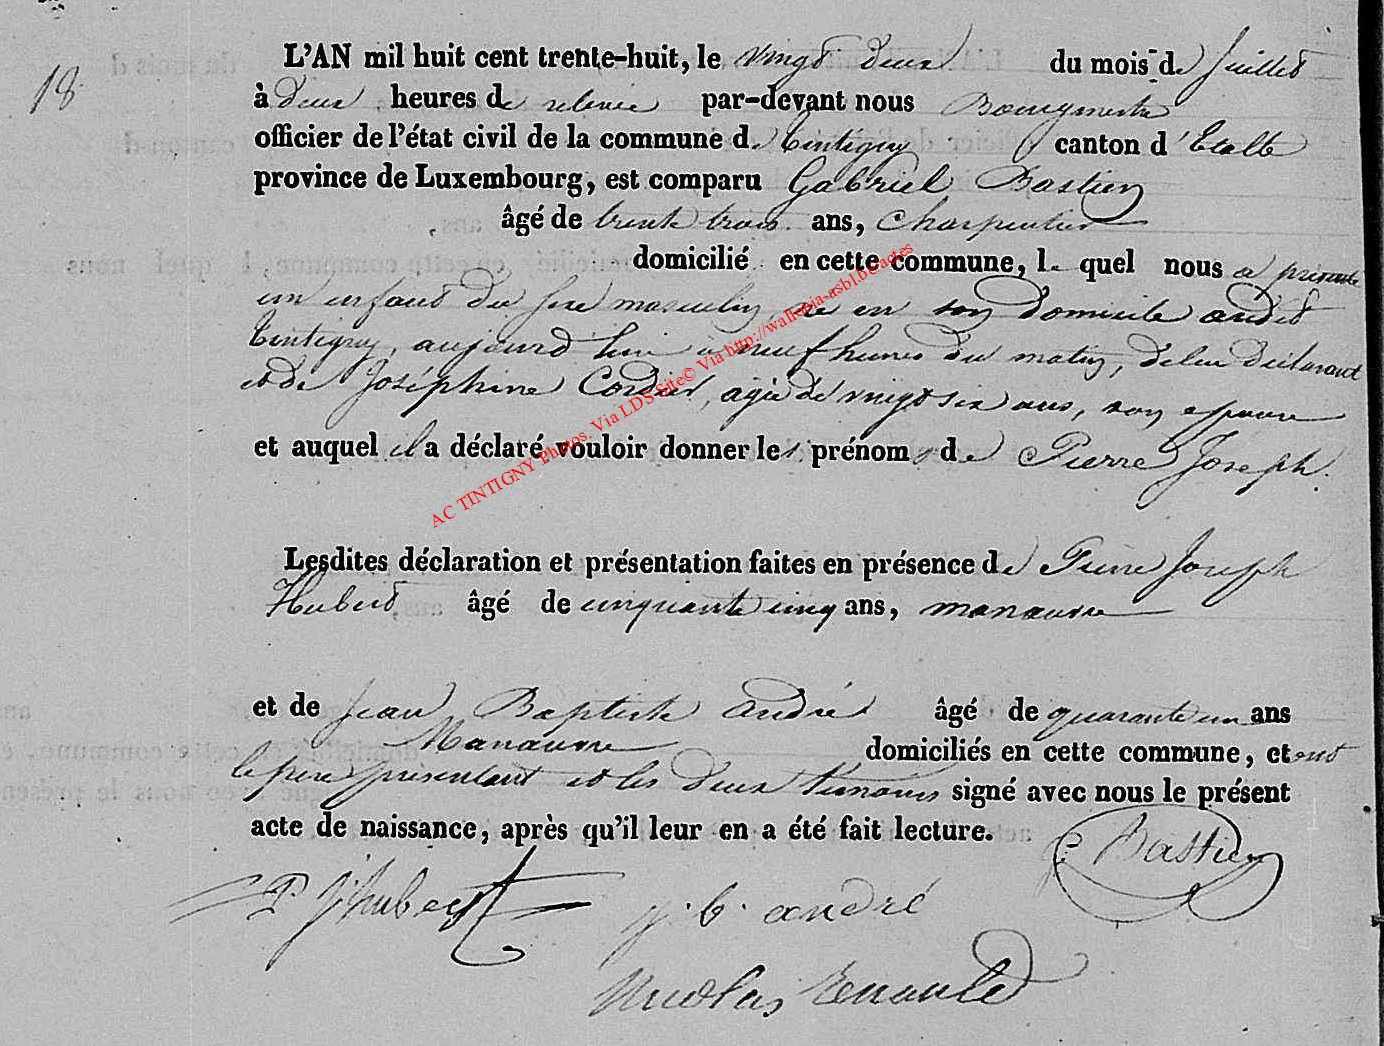 18
L'AN mil huit cent trente-huit, le vingt deux du mois de Juillet
à deux heures de relevée par-devant nous Bourgmestre
officier de l'état civil de la commune de Tintigny canton d'Etalle
province de Luxembourg, est comparu Gabriel Bastien
âgé de trente trois ans, Charpentier
domicilié en cette commune, le quel nous a présenté
un enfant du sexe masculin, né en son domicile audit
Tintigny, aujourd'hui à neuf heures du matin, de lui déclarant
et de Joséphine Cordier, agée de vingt six ans, son épouse
et auquel il a déclaré vouloir donner les prénoms de Pierre Joseph.
Lesdites déclaration et présentation faites en présence de Pierre Joseph
Hubert âgé de cinquante cinq ans, manœuvre
et de Jean Baptiste André âgé de quarante un ans
Manœuvre domiciliés en cette commune, et ont
le père présentant et les deux témoins signé avec nous le présent
acte de naissance, après qu'il leur en a été fait lecture.
G. Bastien
P. J. hubert
j. b. andré
Nicolas Renauld
AC TINTIGNY Photos. Via LDS Site© Via http://wallonia-asbl.be/actes